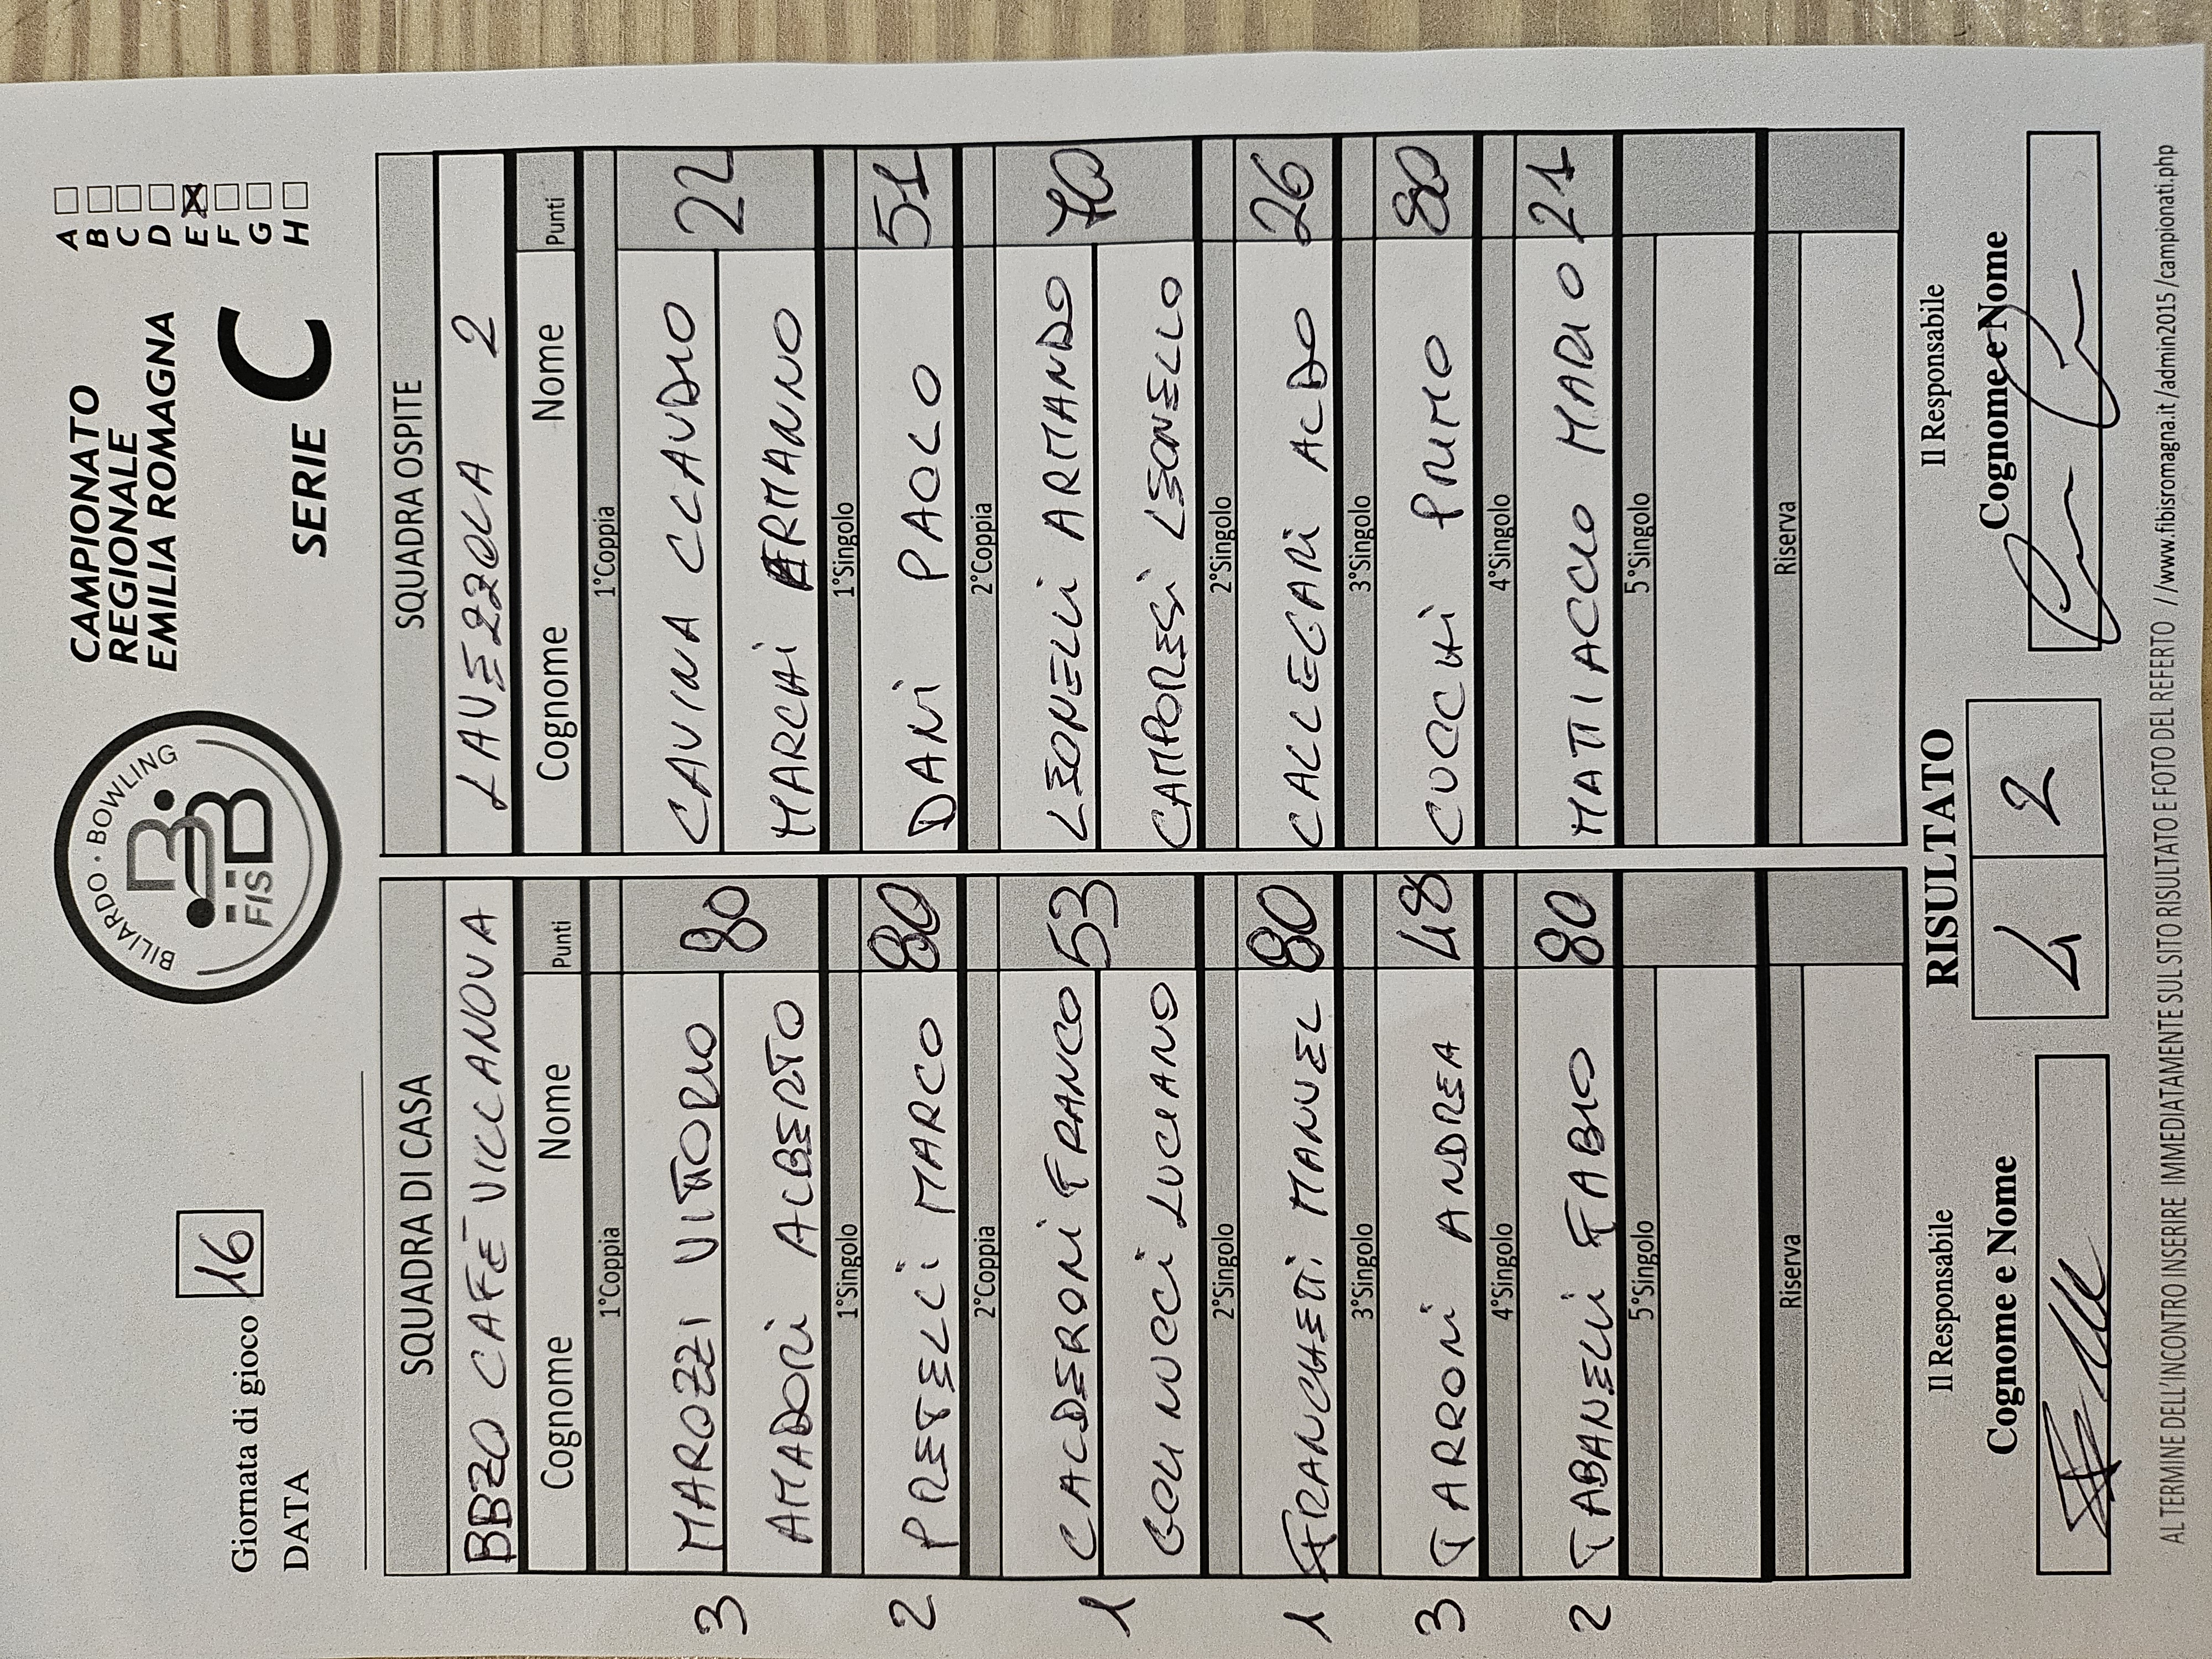 Giornata di gioco 16
DATA
BILIARDO · BOWLING
FISBB
CAMPIONATO
REGIONALE
EMILIA ROMAGNA
SERIE C
A
B
C
D
E
F
G
H
SQUADRA DI CASA SQUADRA OSPITE
BBZO CAFÈ VILLANOVA LAVEZZOLA 2
Cognome Nome Punti Cognome Nome Punti
1°Coppia 1°Coppia
3 MAROZZI VITTORIO 80 CAVINA CLAUDIO 22
AMADORI ALBERTO MARCHI ERMANNO
1°Singolo 1°Singolo
2 PRETELLI MARCO 80 DANI PAOLO 51
2°Coppia 2°Coppia
1 CALDERONI FRANCO 53 LEONELLI ARMANDO 70
GOLINUCCI LUCIANO CAMPORESI LEONELLO
2°Singolo 2°Singolo
1 FRANCHETTI MANUEL 80 CALLEGARI ALDO 26
3°Singolo 3°Singolo
3 TARRONI ANDREA 48 CUCCHI PRIMO 80
4°Singolo 4°Singolo
2 TABANELLI FABIO 80 MATTIACCIO MARIO 21
5°Singolo 5°Singolo
Riserva Riserva
Il Responsabile RISULTATO Il Responsabile
Cognome e Nome 4 2 Cognome e Nome
AL TERMINE DELL'INCONTRO INSERIRE IMMEDIATAMENTE SUL SITO RISULTATO E FOTO DEL REFERTO //www.fibisromagna.it/admin2015/campionati.php